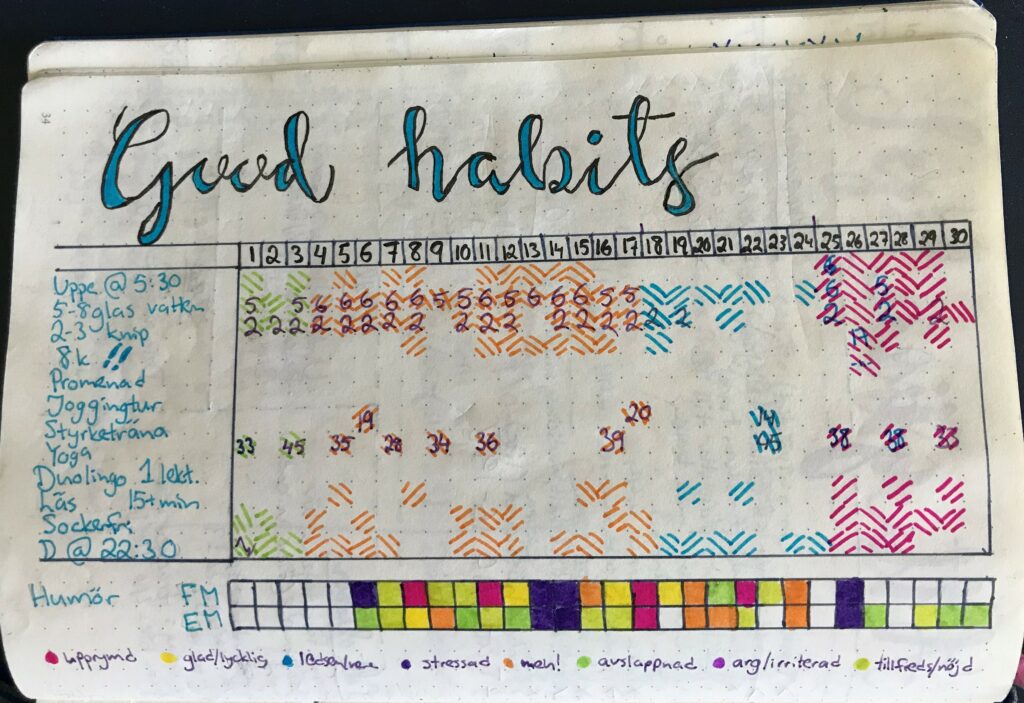 34
Good habits
1 2 3 4 5 6 7 8 9 10 11 12 13 14 15 16 17 18 19 20 21 22 23 24 25 26 27 28 29 30
Uppe @ 5:30
5-8 glas vatten
2-3 knip
8k !!
Promenad
Joggingtur
Styrketräna
Yoga
Duolingo 1 lekt.
Läs 15+ min
Sockerfri
D @ 22:30
5 5 6 6 6 6 6 5 5 6 6 6 5 6 5 5 5 5
2 2 2 2 2 2 2 2 2 2 2 2 2 2 2 2 2 2 2 2 2
19 20
33 45 35 28 34 36 39 38 38 33
Humör FM
EM
upprymd glad/lycklig ledsen/ stressad meh! avslappnad arg/irriterad tillfreds/nöjd